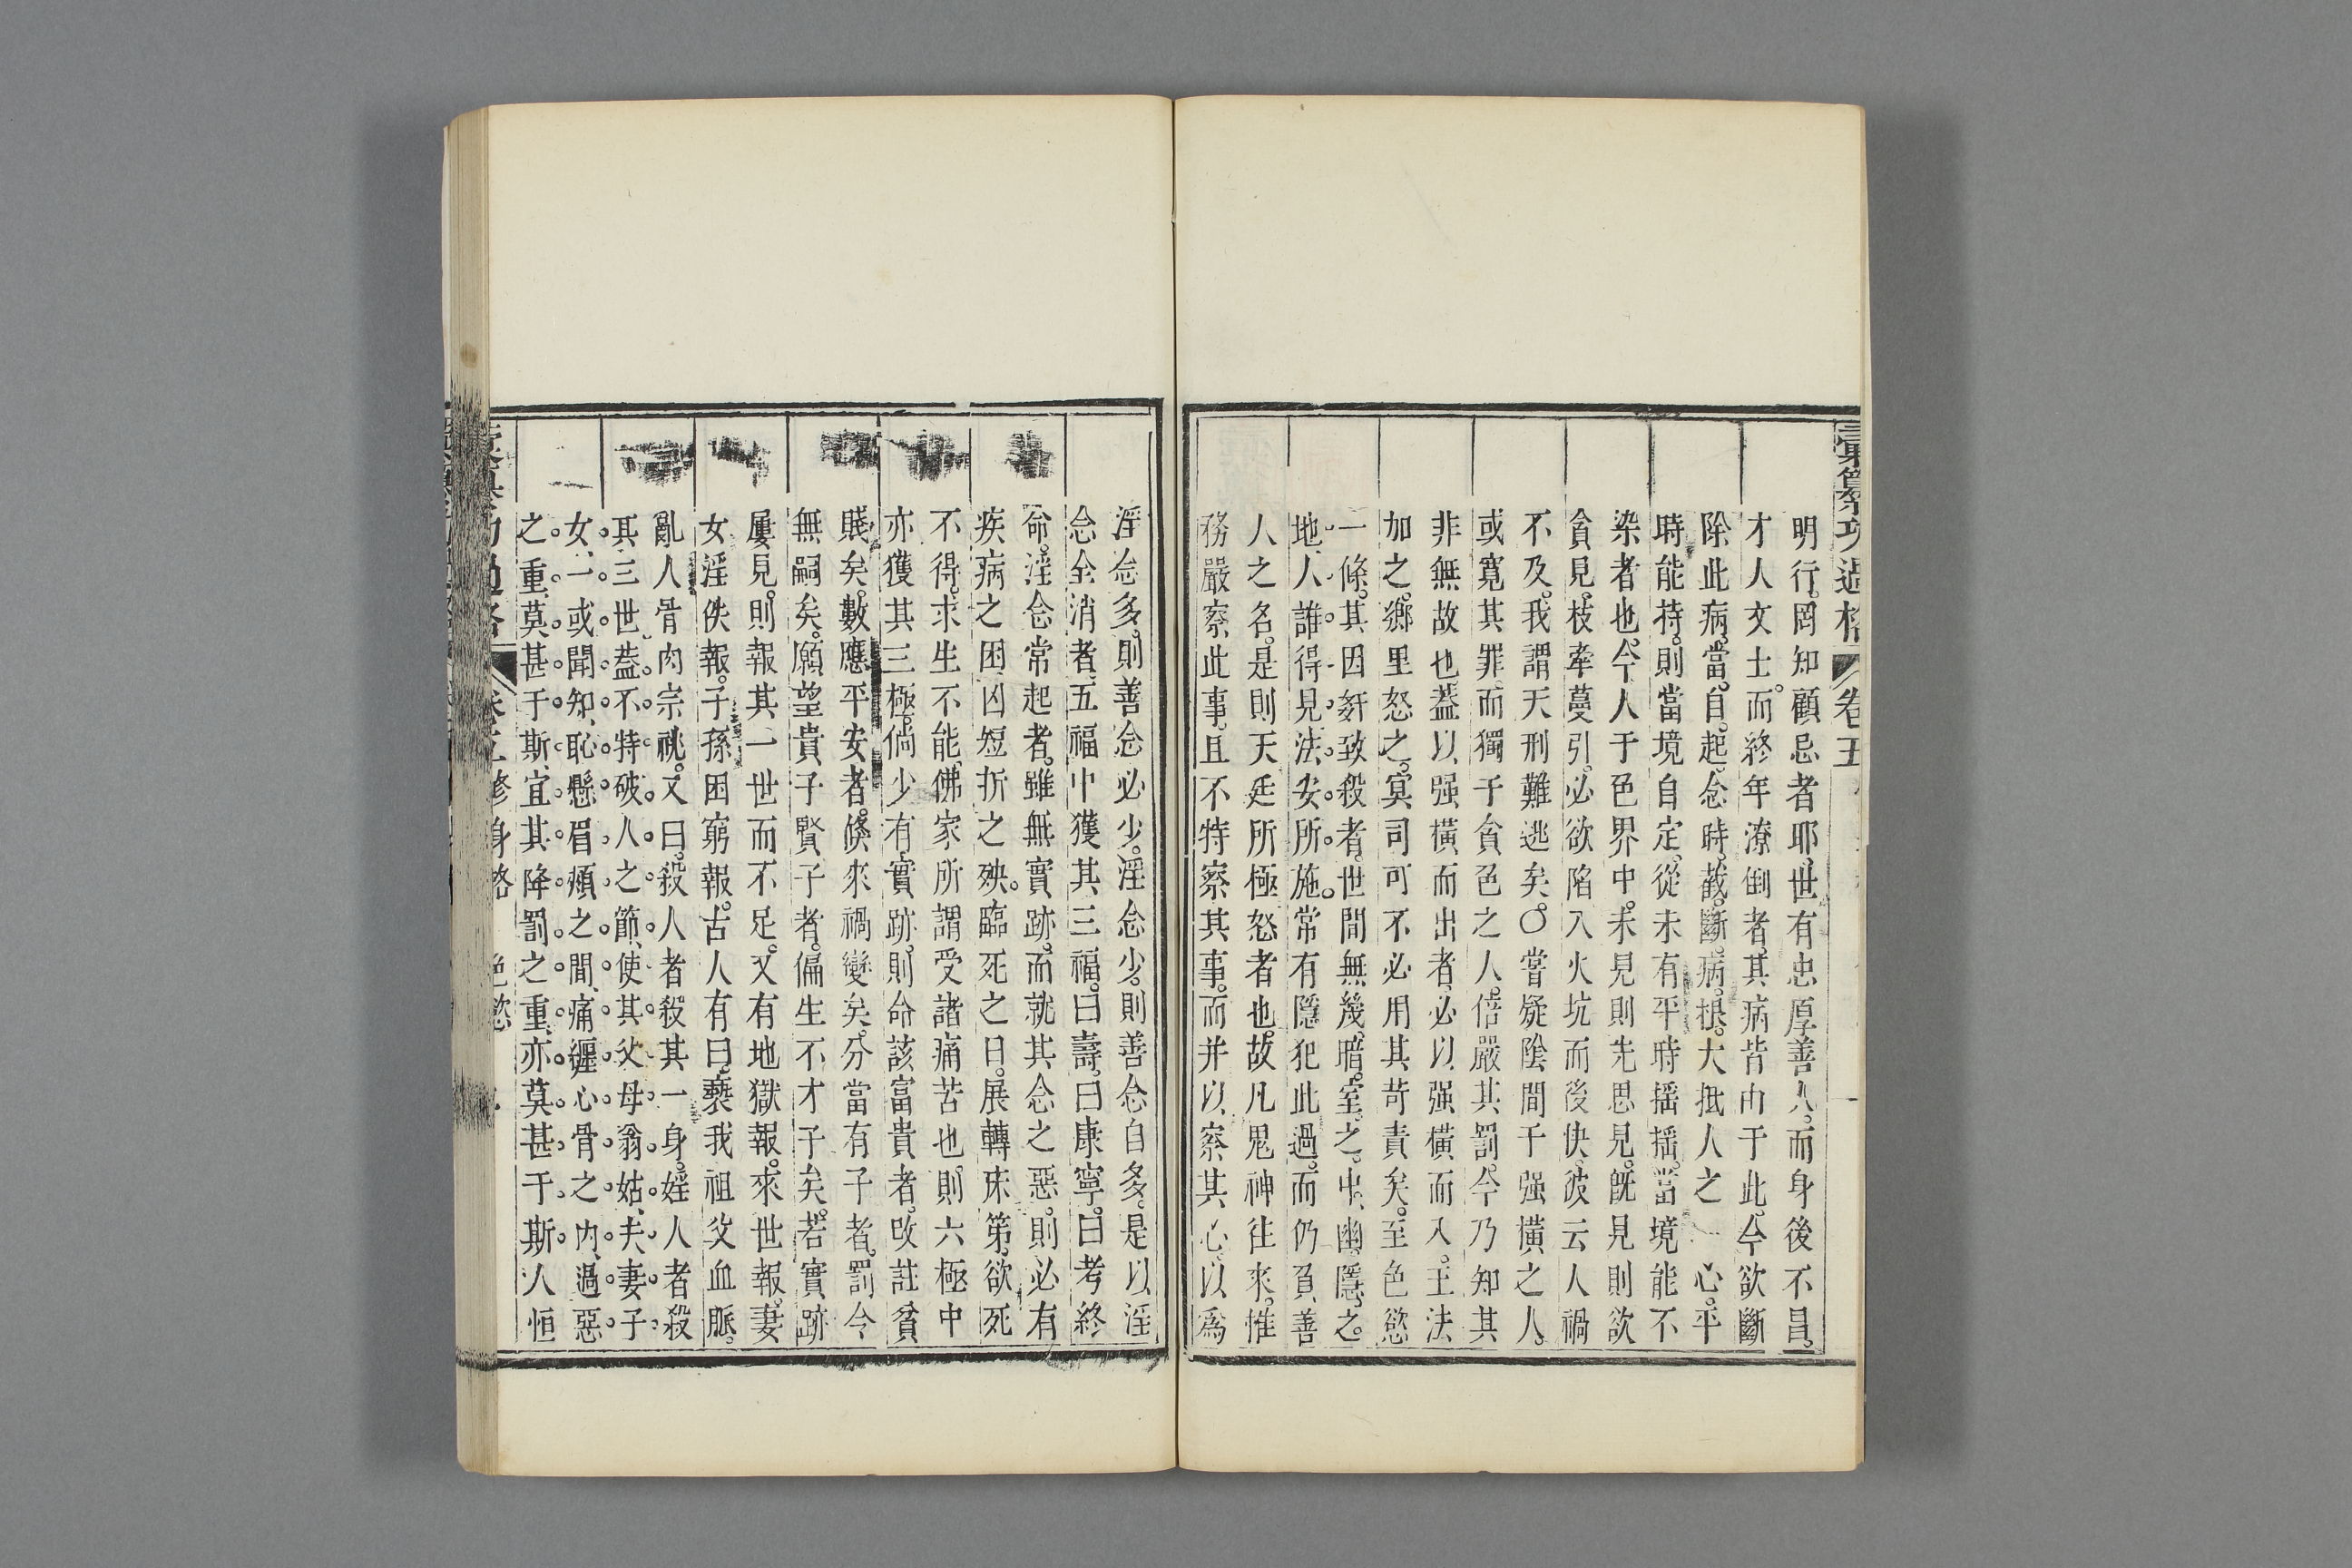 彙纂功過格 卷五
明行。罔知顧忌者耶。世有忠厚善人。而身後不昌。
才人文士。而終年潦倒者。其病皆由于此。今欲斷
除此病。當。自。起。念時。截。斷。病。根。大抵人之一心。平
時能持。則當境自定。從未有平時搖搖。當境能不
染者也。今人于色界中。未見則先思見。旣見則欲
貪見。枝牽蔓引。必欲陷入火坑而後快。彼云人禍
不及。我謂天刑難逃矣。○嘗疑陰間于强橫之人。
或寬其罪。而獨于貪色之人。倍嚴其罰。今乃知其
非無故也。葢以强橫而出者。必以强橫而入。王法
加之。鄉里怒之。冥司可不必用其苛責矣。至色慾
一條。其因姧致殺者。世間無幾。暗。室。之。中。幽。隱。之。
地。人。誰。得。見。法。安。所。施。常有隱犯此過。而仍負善
人之名。是則天廷所極怒者也。故凡鬼神往來。惟
務嚴察此事。且不特察其事。而并以察其心。以爲
淫念多。則善念必少。淫念少。則善念自多。是以淫
念全消者。五福中獲其三福。曰壽。曰康寧。曰考終
命。淫念常起者。雖無實跡。而就其念之惡。則必有
疾病之困。凶短折之殃。臨死之日。展轉床第。欲死
不得。求生不能。佛家所謂受諸痛苦也。則六極中
亦獲其三極。倘少有實跡。則命該富貴者。改註貧
賤矣。數應平安者。倐來禍變矣。分當有子者。罰今
無嗣矣。願望貴子賢子者。偏生不才子矣。若實跡
屢見。則報其一世而不足。又有地獄報。來世報。妻
女淫佚報。子孫困窮報。古人有曰。褻我祖父血脈。
亂人骨肉宗祧。又曰。殺人者殺其一身。婬人者殺
其三世。葢不特破人之節。使其父母翁姑。夫妻子
女、一或聞知、恥懸眉頰之間、痛纏心骨之內、過惡
之重。莫甚于斯。宜其降罰之重。亦莫甚于斯。人恒
功過格 卷五 修身格 色慾